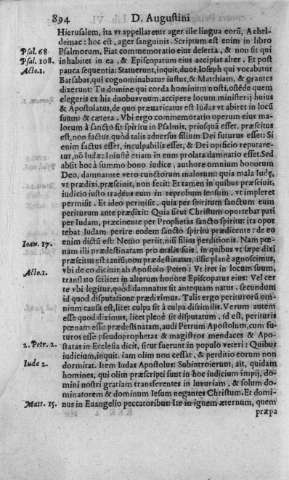 894 D. Augustini
Hierusalem, ita vt appellaretur ager ille lingua eorũ, Achel-
demac: hoc est, ager sanguinis. Scriptum est enim in libro
Psal. 68 Psalmorum, Fiat commemoratio eius deserta, & non sit qui
Psal. 108. inhabitet in ea, & Episcopatum eius accipiat alter. Et post
Acto. 1. pauca sequentia. Statuerunt, inquit, duos Ioseph qui vocabatur
Barsabas, qui cognominabatur iustus, & Matthiam, & orantes
dixerunt: Tu domine qui corda hominum nosti, ostẽde quem
elegeris ex his duobus vnum, accipere locum ministerij huius
& Apostolatus, de quo præuaricatus est Iudas vt abiret in locũ
suum: & cætera. Vbi ergo commemoratio operum eius ma-
lorum à sancto sit spiritu in Psalmis, priusquã esset, præscitus
est, non factus, quòd talis aduersus filium Dei futurus esset: Si
enim factus esset, inculpabilis esset, & Dei opificio reputare-
tur, nõ Iudæ. Iniustè etiam in eum prolata damnatio esset. Sed
absit hoc à summo bono iudice, authore omnium bonorum
Deo, damnante verò cunctorum malorum: quia mala Iudæ,
vt prædixi, præsciuit, non fecit: Errantem in quibus præsciuit,
iudicio iusto tradere eum in reprobum sensum, vt impleret
permisit. Et ideo permisit, quia per spiritum sanctum eum
periturum ante prædixit: Quia erat Christum oportebat pati
per Iudam, quem præcinente Prophetis sancto spiritu: ita opor
tebat Iudam perire eodem sancto spiritu perhibente: de eo
enim dictũ est: Nemo perijt, nisi filius perditionis. Nam pœ-
Ioan. 17. nam illi prædestinatam pro malis suis, in quibus vt sæpe dixi
præscitus est talis, non prædestinatus, ille planè agnoscimus,
Acto. 1. vbi de eo dicitur ab Apostolo Petro: Vt iret in locum suum,
transmisso scilicet in alterum honore Episcopatus eius. Vel cer
tè vbi legitur, quòd damnatus sit antequam natus, secundum
id quod disputatione prædiximus. Talis ergo perituroru om-
nium causa est, licet culpa sit à culpa dissimilis. Verùm autem
esse quod diximus, licet plenè sit disputatum, id est, perituris
pœnam esse prædestinatam, audi Petrum Apostolum, cum fu-
turos esse pseudoprophetas & magistros mendaces & Apo-
2. Petr. 2. statas in Ecclesia dicit, sicut fuerunt in populo veteri: Quibus
iudicium, inquit, iam olim non cessat, & perditio eorum non
Iude 2. dormitat. Item Iudas Apostolus: Subintroierunt, ait, quidam
homines, qui olim præscripti sunt in hoc iudicium impij, do-
mini nostri gratiam transferentes in luxuriam, & solum do-
minatorem & dominum Iesum negantes Christum. Et domi-
Matt. 25. nus in Euangelio peccatoribus: Ite in ignem æternum, quem
præpa